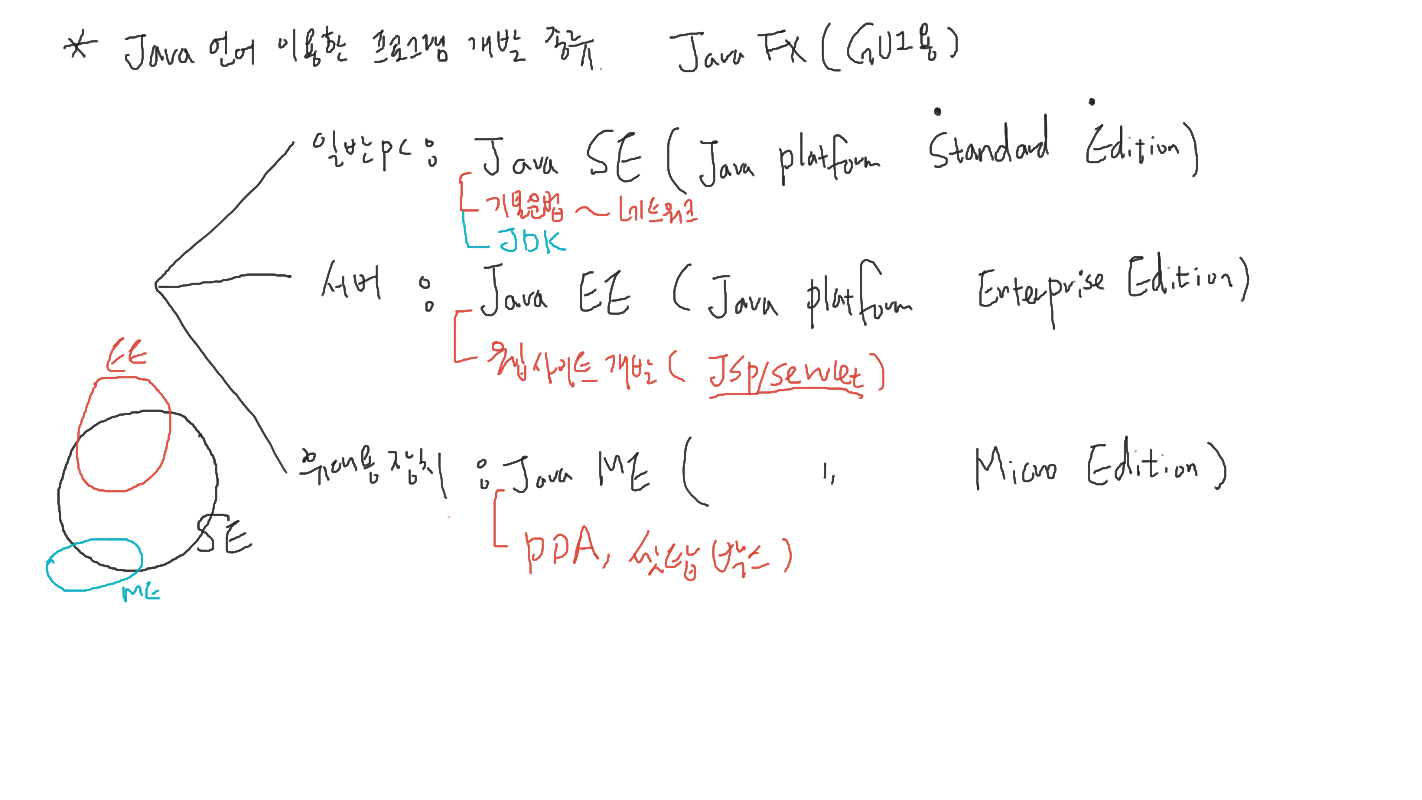 * Java 언어 이용한 프로그램 개발 종류. Java FX (GUI용)
일반PC : Java SE (Java platform Standard Edition)
기본문법 ~ 네트워크
JDK
서버 : Java EE (Java platform Enterprise Edition)
웹사이트 개발 (Jsp/servlet)
휴대용 장치 : Java ME ( " Micro Edition)
PDA, 셋탑박스)
EE
SE
ME